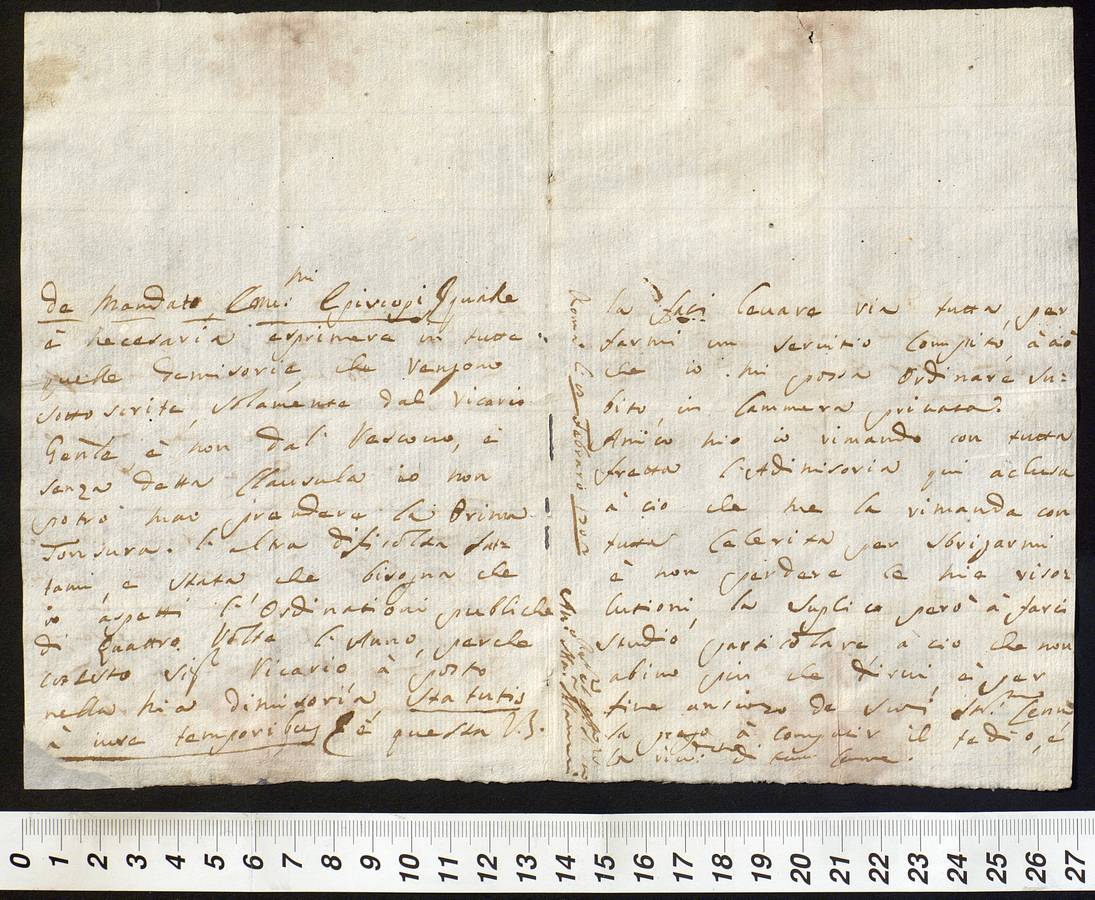 de Mandato Emi Episcopi quale
mi
è necesaria esprimere in tutte
quelle demisorie, che vengono
sotto scrite, solamente dal vicario
Genle è non dal Vescovo, è
senza detta Clausula io non
potrò mai prendere la Prima
Tonsura. l'altra dificolta fat-
tami, e stata che bisogna che
io aspetti l'Ordinationi publiche
di Quattro Volte l'Anno, perche
cotesto Sigr Vicario à posto
nella mia dimisoria, statutis
à iure temporibus è questa V.S.
la faci levare via tutta, per
farmi un servitio compito, à ciò
che io mi possa Ordinare su=
bito, in Cammera privata.
Amico mio io rimando con tutta
fretta l'Adimisoria qui aclusa
à ciò che me la rimanda con
tutta Celerità per sbrigarmi
è non perdere le mie risoz
lutioni, la suplico però à farci
studio particolare, à ciò che non
abino più che dirci, è per
fine ansioso de suoi
la prego à compatir il tedio, è
la riv. di
Roma li Febraro